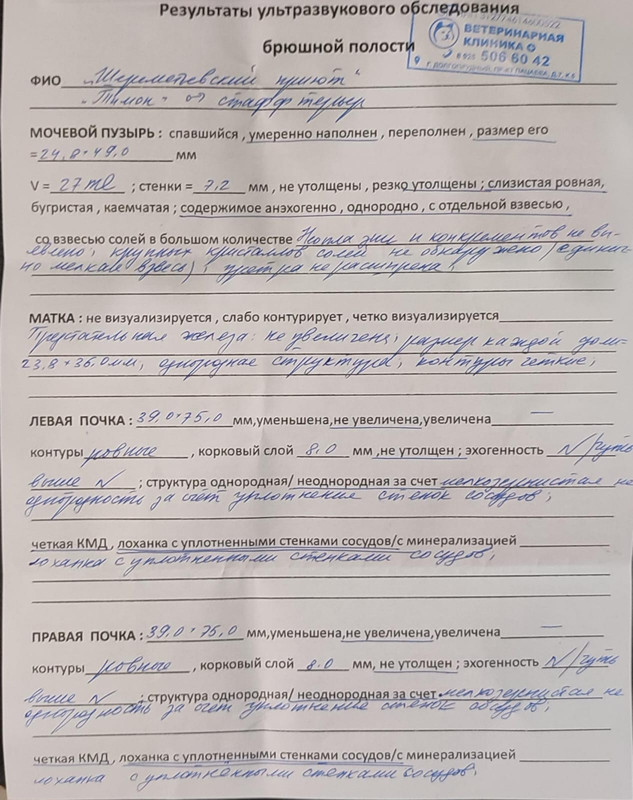 Результаты ультразвукового обследования
брюшной полости
ВЕТЕРИНАРНАЯ
КЛИНИКА
506 60 42
ФИО "Шереметьевский приют"
"Тимон" ♂ стаффтерьер
МОЧЕВОЙ ПУЗЫРЬ : спавшийся , умеренно наполнен , переполнен , размер его
=24,8*49,0 мм
V = 27ml ; стенки = 7,2 мм , не утолщены , резко утолщены ; слизистая ровная,
бугристая , каемчатая ; содержимое анэхогенно , однородно , с отдельной взвесью ,
со взвесью солей в большом количестве и конкрементов не вы-
явлено; крупных кристаллов солей не обнаружено (единич-
но мелкая взвесь); уретра не расширена;
МАТКА : не визуализируется , слабо контурирует , четко визуализируется
Предстательная железа: не увеличена; размер каждой доли=
23,8*36,0мм, однородная структура, контуры четкие;
ЛЕВАЯ ПОЧКА : 39,0*75,0 мм,уменьшена,не увеличена,увеличена —
контуры ровные , корковый слой 8,0 мм ,не утолщен ; эхогенность N/чуть
выше N ; структура однородная/ неоднородная за счет мелкозернистая не
однородность за счет уплотнения стенок сосудов;
четкая КМД , лоханка с уплотненными стенками сосудов/с минерализацией
лоханка с уплотненными стенками сосудов;
ПРАВАЯ ПОЧКА : 39,0*75,0 мм,уменьшена,не увеличена,увеличена —
контуры ровные , корковый слой 8,0 мм, не утолщен ; эхогенность N/чуть
выше N ; структура однородная/ неоднородная за счет мелкозернистая не
однородность за счет уплотнения стенок сосудов;
четкая КМД , лоханка с уплотненными стенками сосудов/с минерализацией
лоханка с уплотненными стенками сосудов;